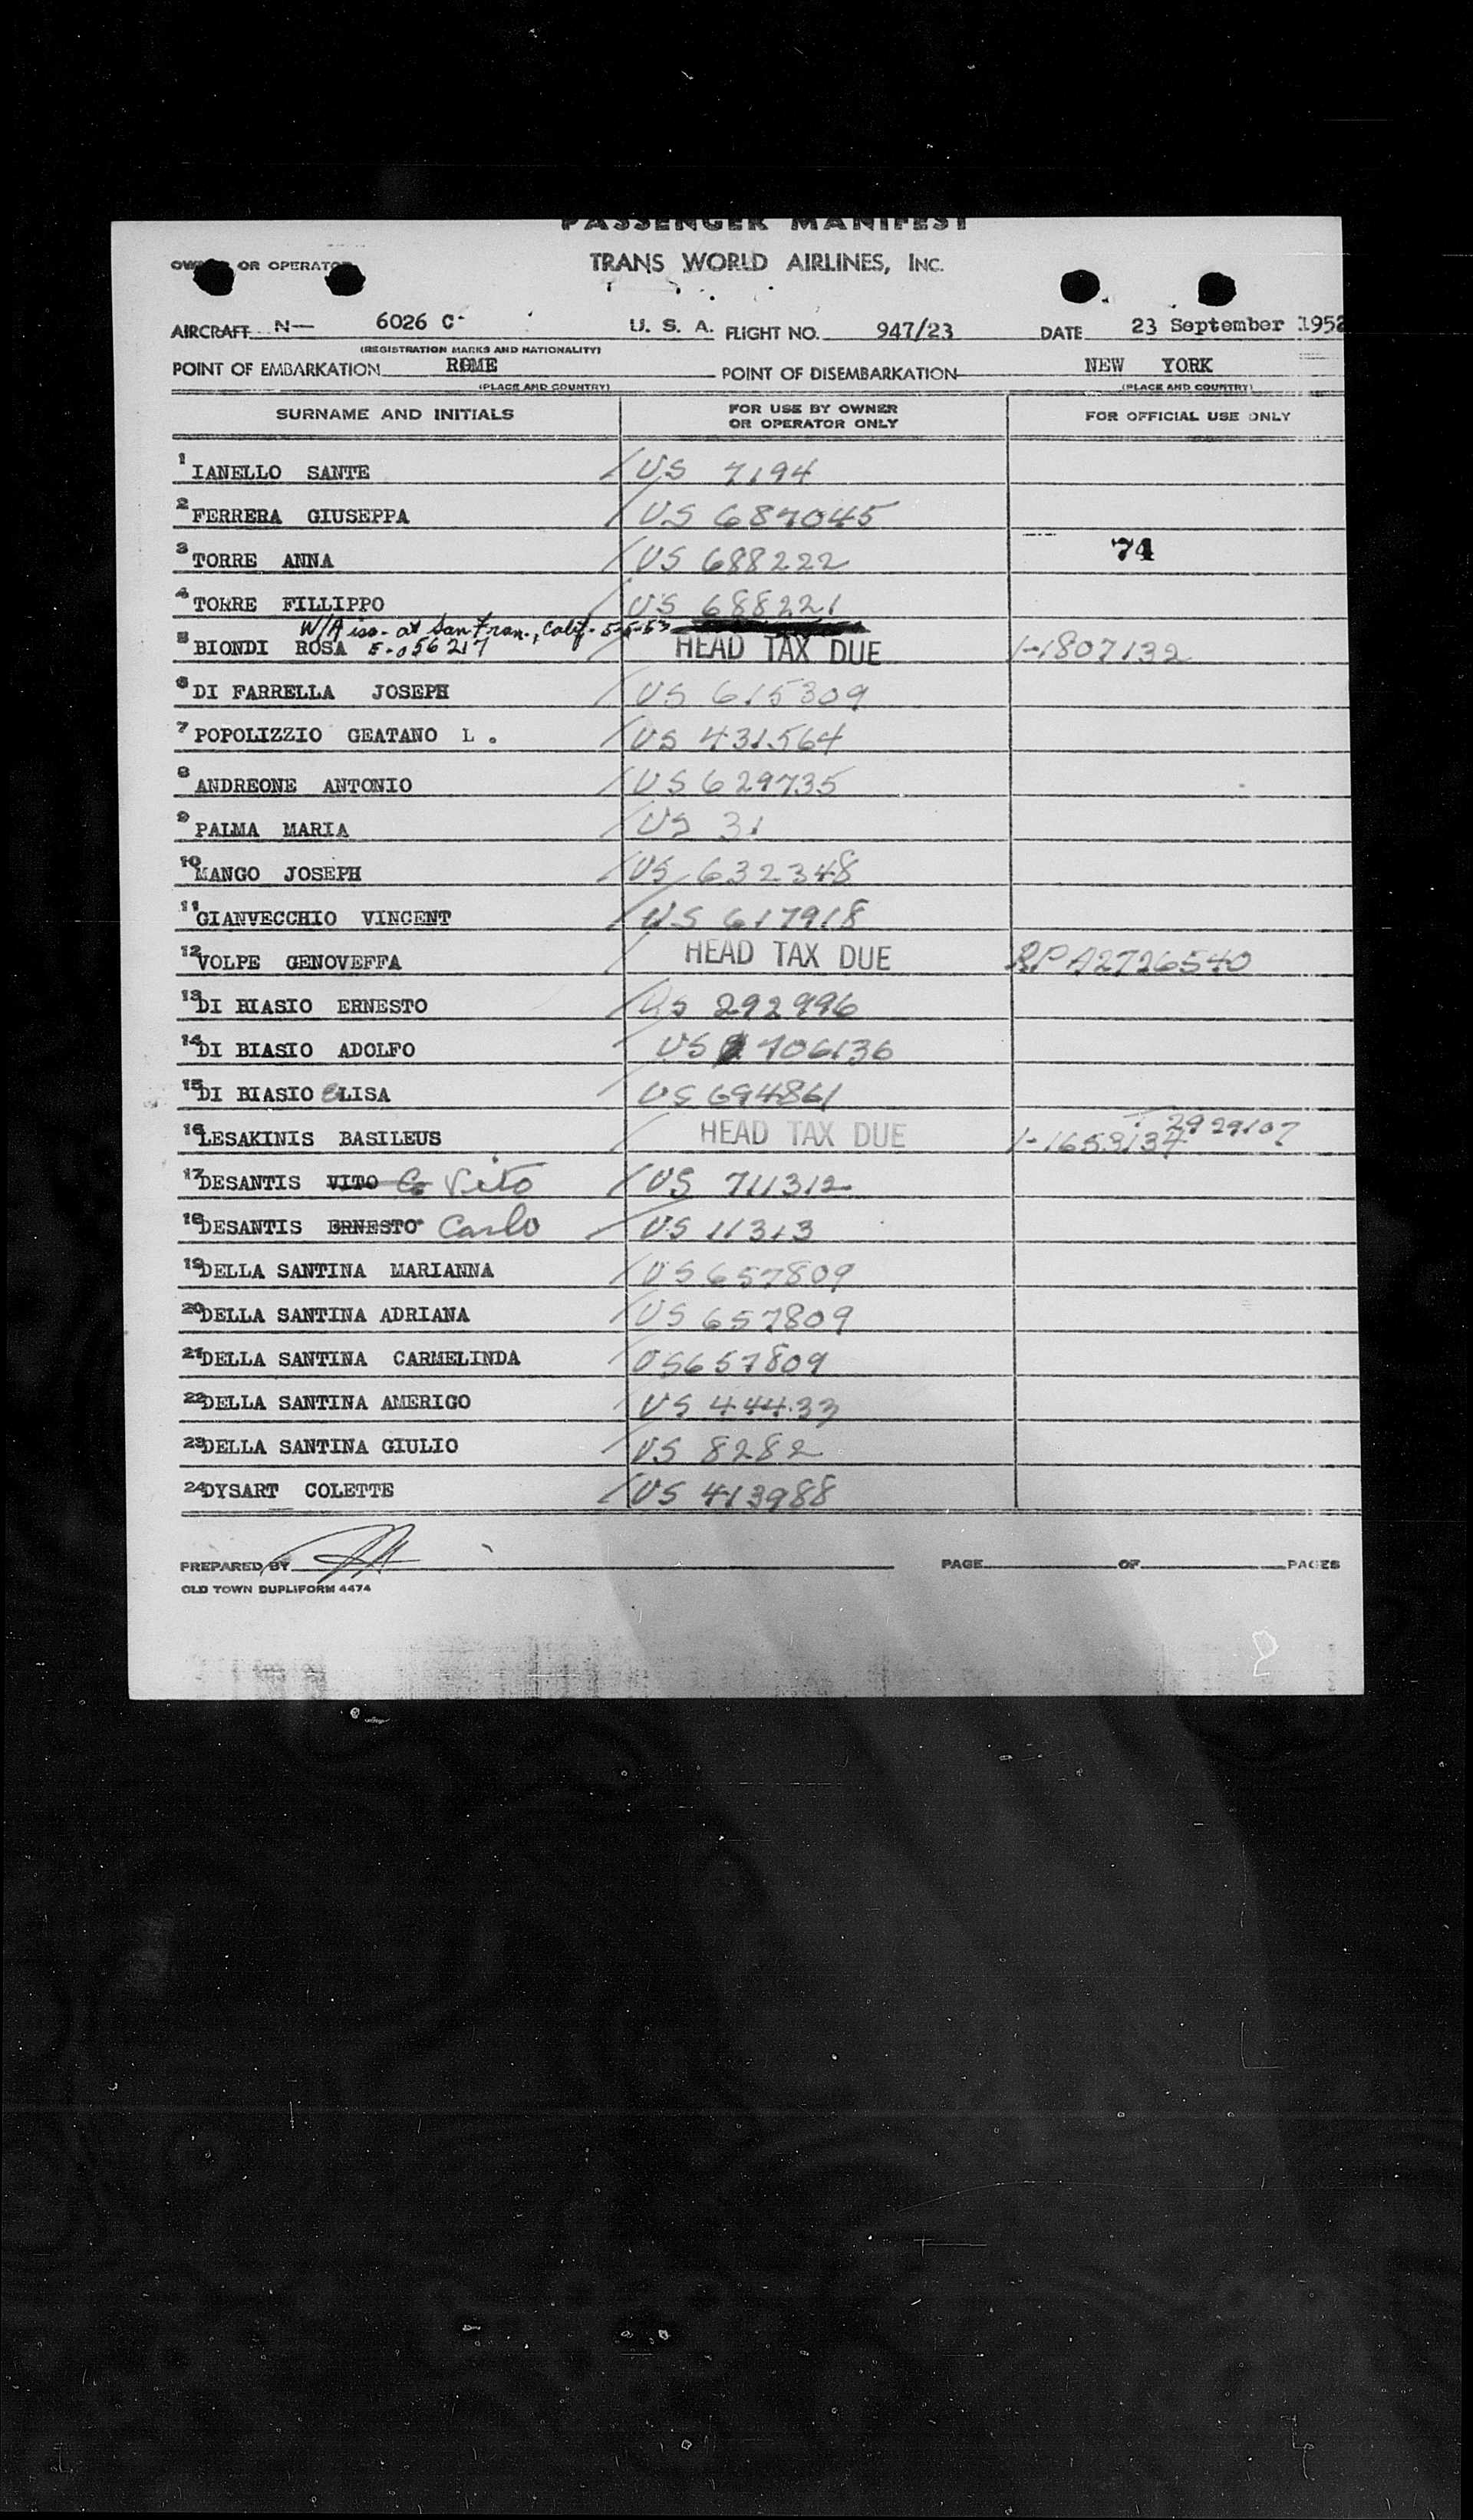 PASSENGER MANIFEST
OWNER OR OPERATOR TRANS WORLD AIRLINES, INC.
AIRCRAFT N— 6026 C U. S. A. FLIGHT NO. 947/23 DATE 23 September 1952
(REGISTRATION MARKS AND NATIONALITY)
POINT OF EMBARKATION ROME POINT OF DISEMBARKATION NEW YORK
(PLACE AND COUNTRY) (PLACE AND COUNTRY)
SURNAME AND INITIALS FOR USE BY OWNER OR OPERATOR ONLY FOR OFFICIAL USE ONLY
1 IANELLO SANTE / US 7194
2 FERRERA GIUSEPPA / US 687045
3 TORRE ANNA / US 688222 74
4 TORRE FILLIPPO / US 688221
W/A iss. at San Fran., Calif. 5-5-53
5 BIONDI ROSA E-056217 / HEAD TAX DUE 1-1807132
6 DI FARRELLA JOSEPH / US 615309
7 POPOLIZZIO GEATANO L . / US 431564
8 ANDREONE ANTONIO / US 629735
9 PALMA MARIA / US 31
10 MANGO JOSEPH / US 632348
11 GIANVECCHIO VINCENT / US 617918
12 VOLPE GENOVEFFA / HEAD TAX DUE RP A2726540
13 DI BIASIO ERNESTO / US 292996
14 DI BIASIO ADOLFO / US 706136
15 DI BIASIO ELISA / US 694861
16 LESAKINIS BASILEUS / HEAD TAX DUE 1-1653134 T 2929107
17 DESANTIS VITO Vito / US 711312
18 DESANTIS ERNESTO Carlo / US 11313
19 DELLA SANTINA MARIANNA / US 657809
20 DELLA SANTINA ADRIANA / US 657809
21 DELLA SANTINA CARMELINDA / US 657809
22 DELLA SANTINA AMERIGO / US 44433
23 DELLA SANTINA GIULIO / US 8282
24 DYSART COLETTE / US 413988
PREPARED BY PAGE OF PAGES
OLD TOWN DUPLIFORM 4474